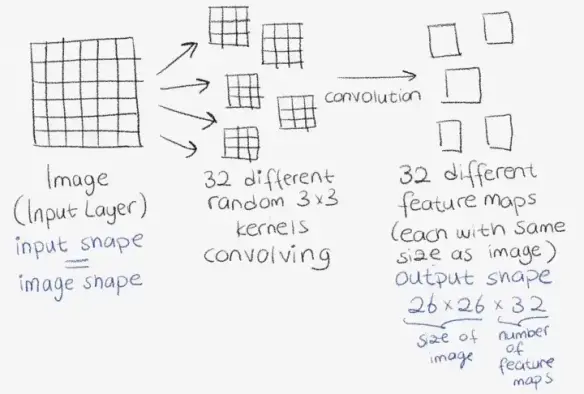 convolution
Image
(Input Layer)
input shape
=
image shape
32 different
random 3×3
kernels
convolving
32 different
feature maps
(each with same
size as image)
output shape
26 × 26 × 32
size of
image
number
of
feature
maps